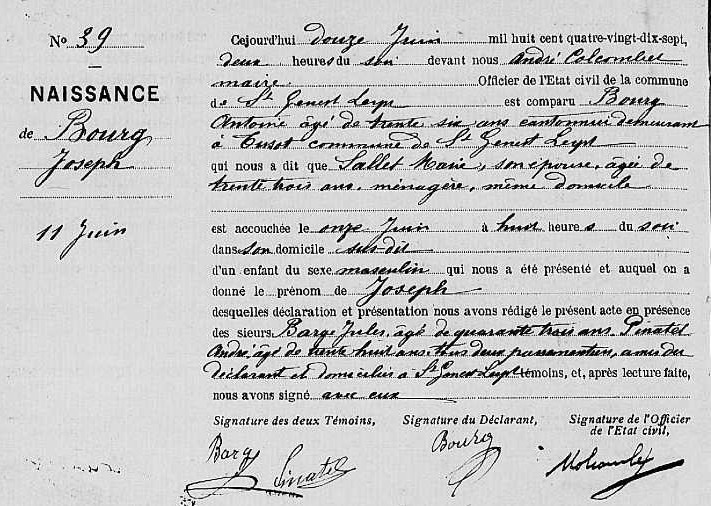 No 39
NAISSANCE
de Bourg
Joseph
11 Juin
Cejourd'hui douze Juin mil huit cent quatre-vingt-dix-sept,
deux heures du soir devant nous André Colcombet
maire Officier de l'Etat civil de la commune
de St Genest Lerpt est comparu Bourg
Antoine âgé de trente six ans cantonnier demeurant
à commune de St Genest Lerpt
qui nous a dit que Sallet Marie, son épouse, âgée de
trente trois ans, ménagère, même domicile
est accouchée le onze Juin à huit heures du soir
dans son domicile sus-dit
d'un enfant du sexe masculin qui nous a été présenté et auquel on a
donné le prénom de Joseph
desquelles déclaration et présentation nous avons rédigé le présent acte en présence
des sieurs Barge Jules, âgé de quarante trois ans, Pinatel
André, âgé de trente huit ans, tous deux passementiers, amis du
déclarant et domiciliés à St Genest Lerpt témoins, et, après lecture faite,
nous avons signé avec eux
Signature des deux Témoins, Signature du Déclarant, Signature de l'Officier
de l'Etat civil,
Barge Pinatel Bourg